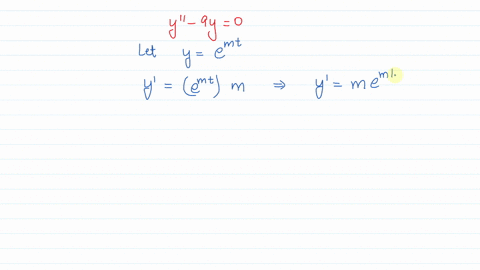 y'' - 9y = 0
Let y = e^{mt}
y' = (e^{mt}) m ⇒ y' = m e^{mt}